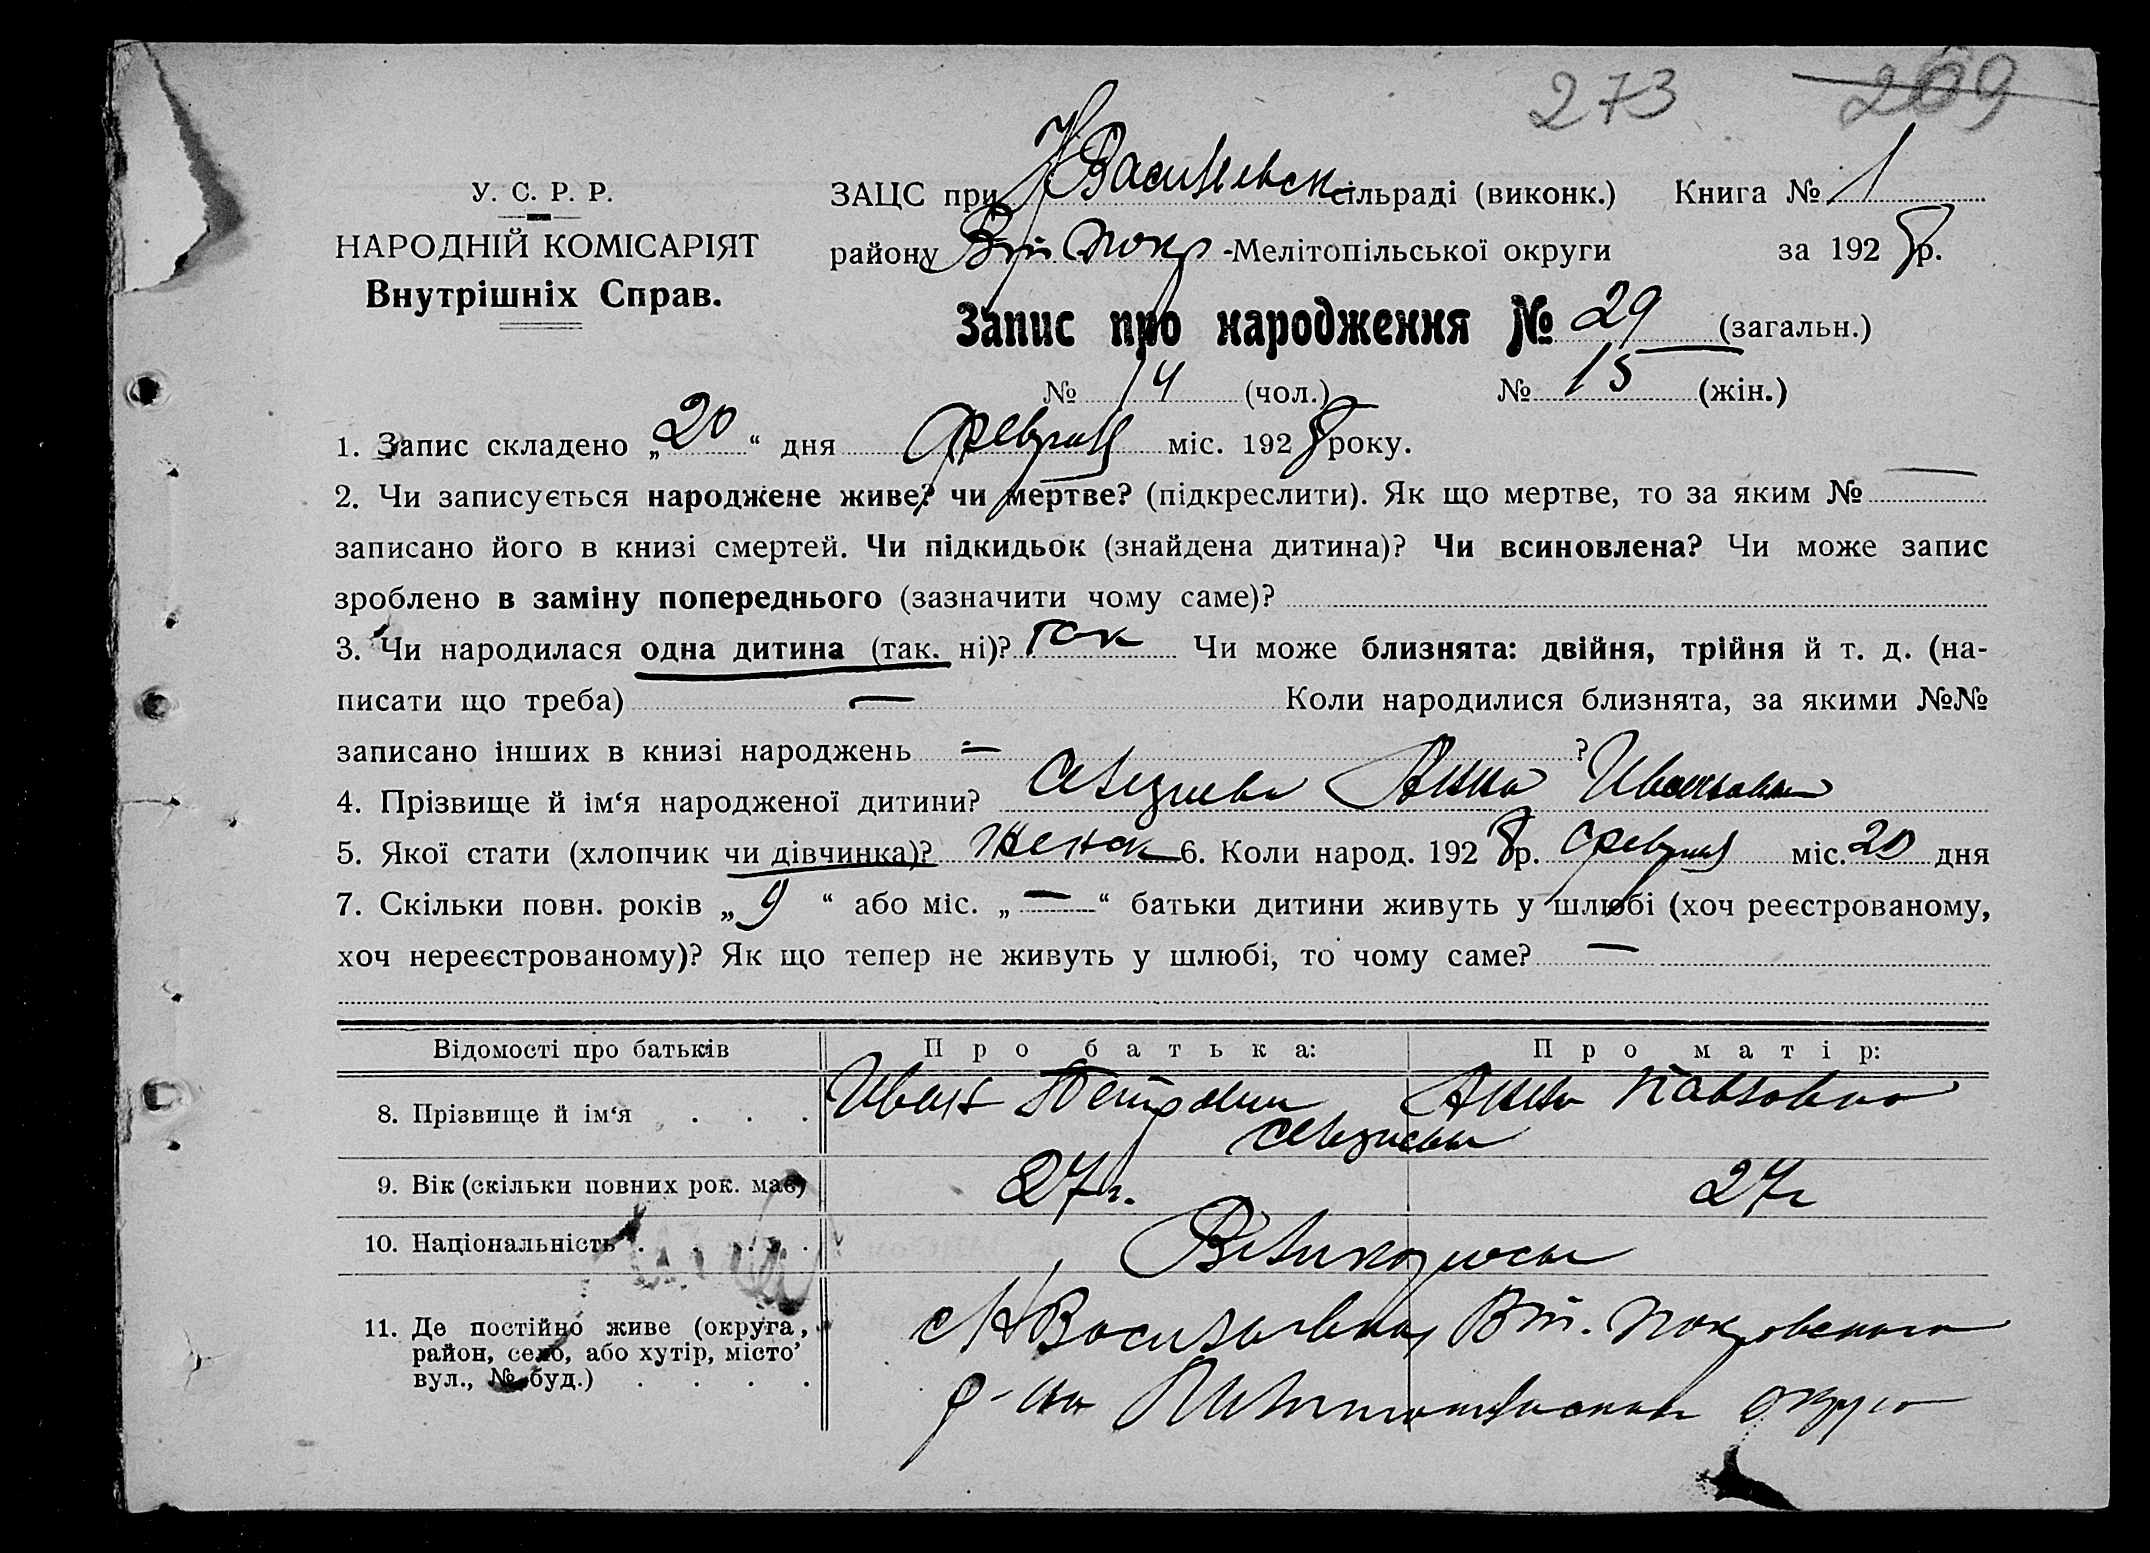 273 269
У. С. Р. Р.
НАРОДНІЙ КОМІСАРІЯТ
Внутрішніх Справ.
ЗАЦС при Н Васильевск сільраді (виконк.) Книга № 1
району Вт Покр -Мелітопільської округи за 1928 р.
Запис про народження № 29 (загальн.)
№ 14 (чол.) № 15 (жін.)
1. Запис складено „20“ дня февраля міс. 1928 року.
2. Чи записується народжене живе? чи мертве? (підкреслити). Як що мертве, то за яким № —
записано його в книзі смертей. Чи підкидьок (знайдена дитина)? Чи всиновлена? Чи може запис
зроблено в заміну попереднього (зазначити чому саме)?
3. Чи народилася одна дитина (так. ні)? так Чи може близнята: двійня, трійня й т. д. (на-
писати що треба) — Коли народилися близнята, за якими №№
записано інших в книзі народжень — ?
4. Прізвище й ім‘я народженої дитини? Анна Ивановна
5. Якої стати (хлопчик чи дівчинка)? Женск 6. Коли народ. 1928 р. февраля міс. 20 дня
7. Скільки повн. років „9“ або міс. „—“ батьки дитини живуть у шлюбі (хоч реєстрованому,
хоч нереєстрованому)? Як що тепер не живуть у шлюбі, то чому саме? —
Відомості про батьків Про батька: Про матір:
8. Прізвище й ім‘я . . . Иван Петрович Анна Павловна
9. Вік (скільки повних рок. має) 27 г. 27 г
10. Національність . . . . . Великороссы
11. Де постійно живе (округа, район, село, або хутір, місто, вул., № буд.) . . . .
с Н Васильевка Вт. Покровского
р-на Мелитопольской округи